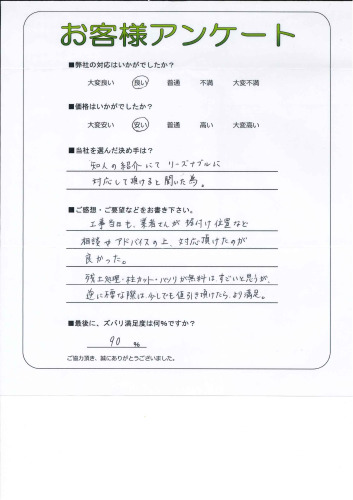 お客様アンケート
■弊社の対応はいかがでしたか?
大変良い 良い 普通 不満 大変不満
■価格はいかがでしたか?
大変安い 安い 普通 高い 大変高い
■当社を選んだ決め手は?
知人の紹介にて リーズナブルに
対応して頂けると聞いた為。
■ご感想・ご要望などをお書き下さい。
工事当日も、業者さんが 据付け位置など
相談やアドバイスの上、対応頂けたのが
良かった。
残土処理・柱カット・ハツリが無料は、すごいと思うが、
逆に不要な際は少しでも値引き頂けたら、より満足。
■最後に、ズバリ満足度は何%ですか?
90 %
ご協力頂き、誠にありがとうございました。